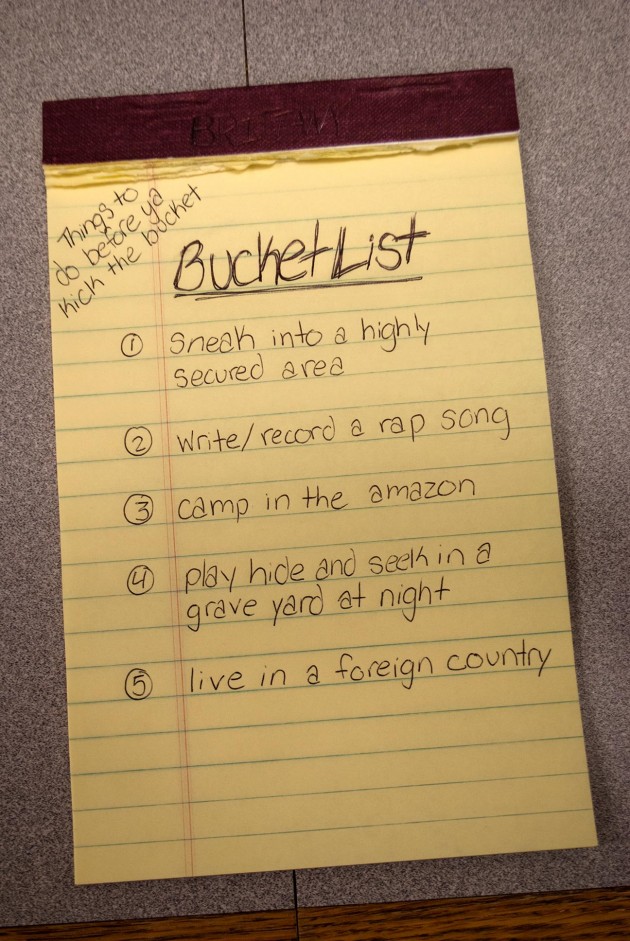 BRITTANY
Things to
do before ya
kick the bucket
Bucket List
① Sneak into a highly
secured area
② write/record a rap song
③ camp in the amazon
④ play hide and seek in a
grave yard at night
⑤ live in a foreign country